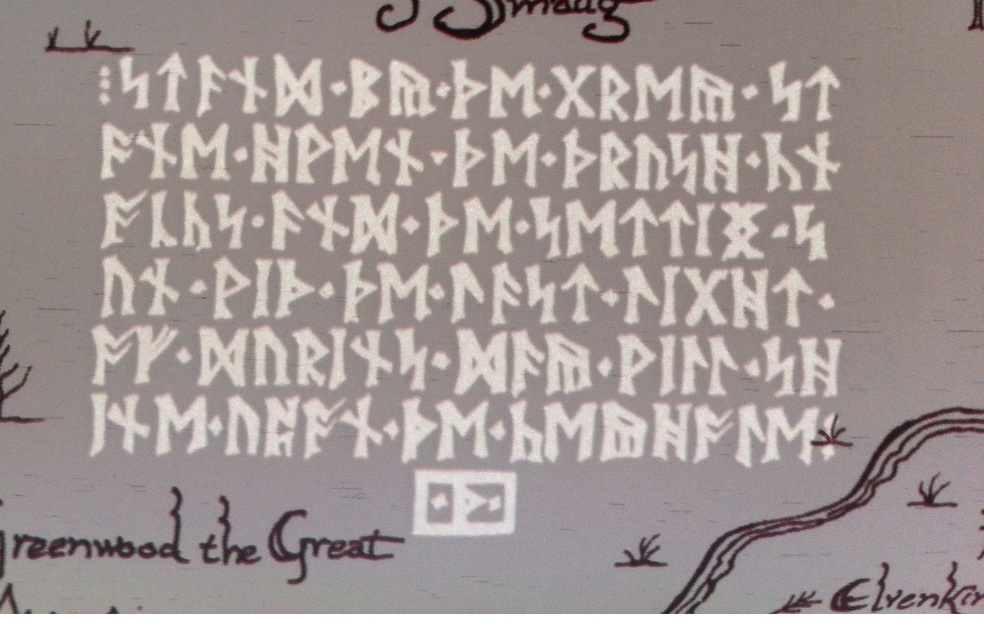 Smaug
⁝ᛋᛏᚪᚾᛞ᛫ᛒᚣ᛫ᚦᛖ᛫ᚷᚱᛖᚣ᛫ᛋᛏ
ᚩᚾᛖ᛫ᚻᚹᛖᚾ᛫ᚦᛖ᛫ᚦᚱᚢᛋᚻ᛫ᚳᚾ
ᚩᚳᚳᛋ᛫ᚪᚾᛞ᛫ᚦᛖ᛫ᛋᛖᛏᛏᛁᛝ᛫ᛋ
ᚢᚾ᛫ᚹᛁᚦ᛫ᚦᛖ᛫ᛚᚪᛋᛏ᛫ᛚᛁᚷᚻᛏ᛫
ᚩᚠ᛫ᛞᚢᚱᛁᚾᛋ᛫ᛞᚪᚣ᛫ᚹᛁᛚᛚ᛫ᛋᚻ
ᛁᚾᛖ᛫ᚢᛈᚩᚾ᛫ᚦᛖ᛫ᚳᛖᚣᚻᚩᛚᛖ⁝
᛫ᚦ᛫
Greenwood the Great
Elvenkin